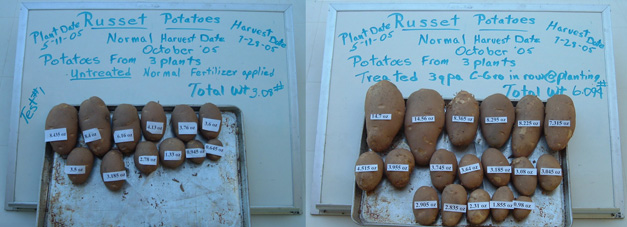 Russet Potatoes
Plant Date
5-11-05
Harvest Date
7-29-05
Normal Harvest Date
October '05
Potatoes From 3 plants
Untreated Normal Fertilizer applied
Test #1
Total Wt 3.08#
4.435 oz
4.4 oz
4.16 oz
4.13 oz
3.76 oz
3.6 oz
3.5 oz
3.195 oz
2.78 oz
1.33 oz
0.945 oz
0.645 oz
Russet Potatoes
Plant Date
5-11-05
Harvest Date
7-29-05
Normal Harvest Date
October '05
Potatoes From 3 plants
Treated 3 gpa C-Gro in row @ planting
Total Wt 6.09#
14.7 oz
14.56 oz
8.365 oz
8.295 oz
8.225 oz
7.315 oz
4.515 oz
3.955 oz
3.745 oz
3.64 oz
3.185 oz
3.08 oz
3.045 oz
2.905 oz
2.835 oz
2.31 oz
1.855 oz
0.98 oz